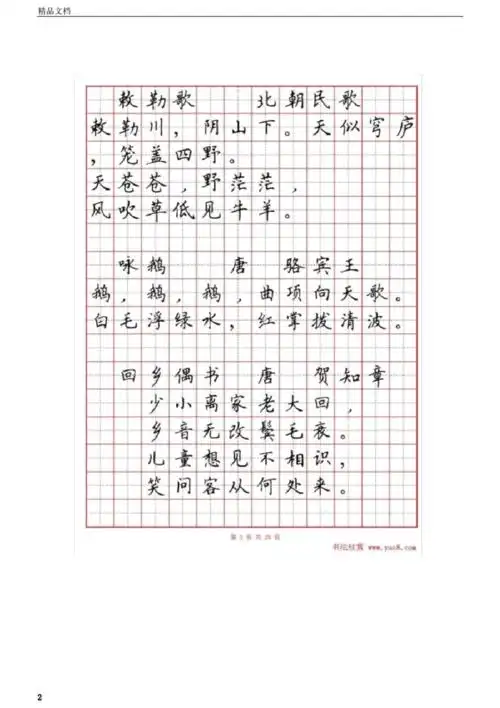 精品文档
敕勒歌 北朝民歌
敕勒川，阴山下。天似穹庐
，笼盖四野。
天苍苍，野茫茫，
风吹草低见牛羊。
咏鹅 唐 骆宾王
鹅，鹅，鹅，曲项向天歌。
白毛浮绿水，红掌拨清波。
回乡偶书 唐 贺知章
少小离家老大回，
乡音无改鬓毛衰。
儿童想见不相识，
笑问客从何处来。
2